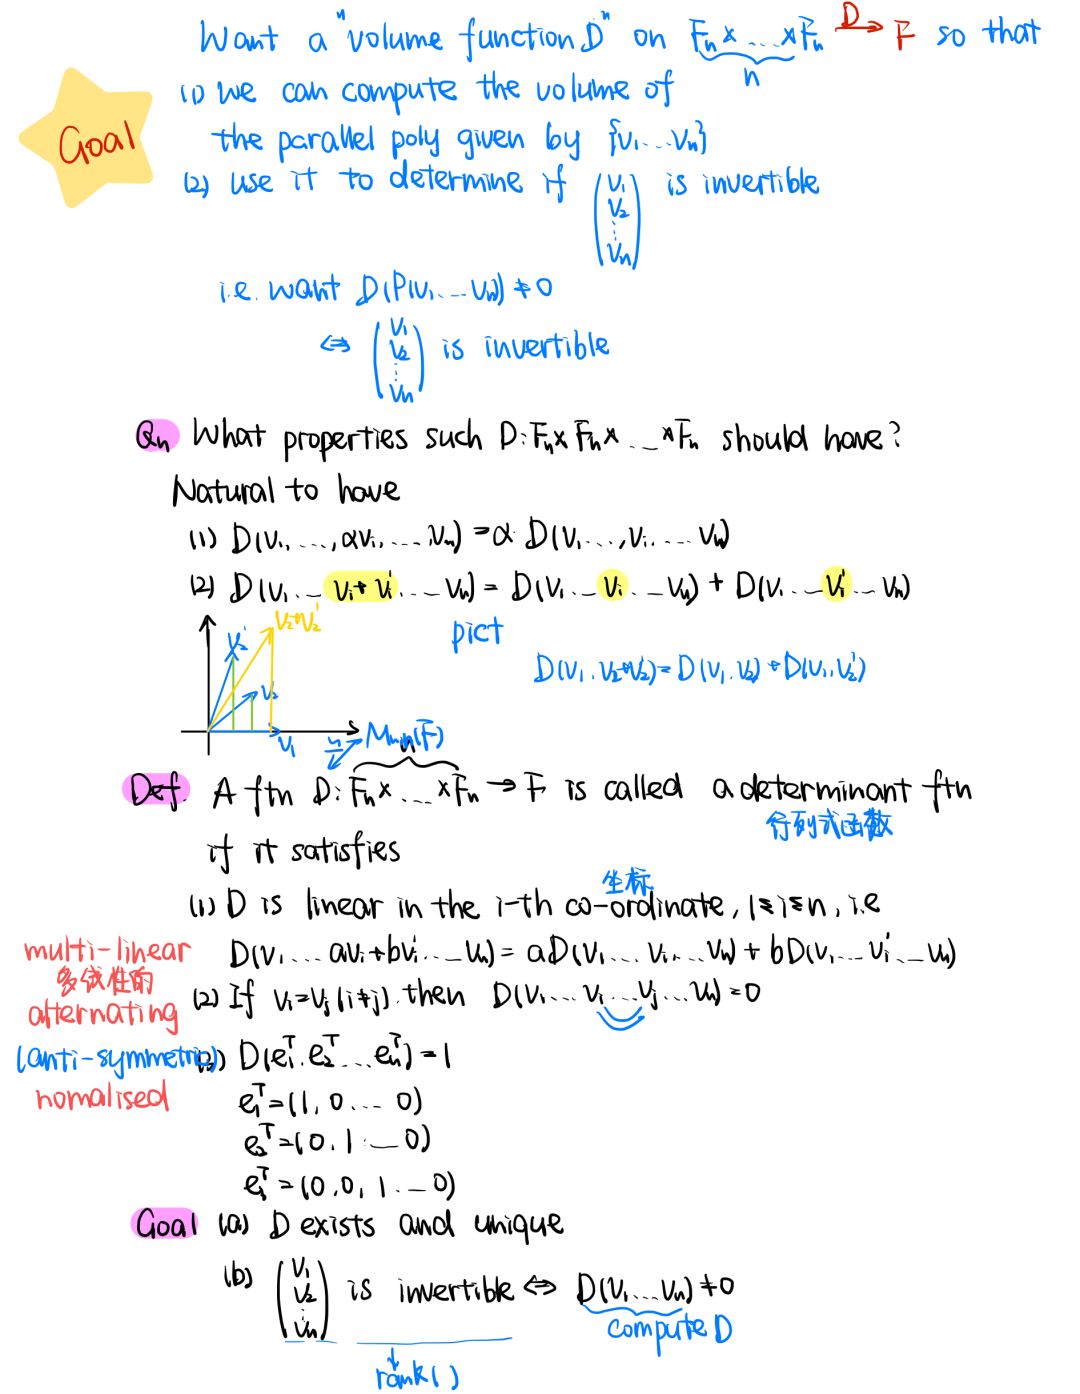 Want a "volume function D" on Fn × ... × Fn —D→ F so that
n
Goal
(1) we can compute the volume of
the parallel poly given by {v1...vn}
(2) use it to determine if (v1 v2 ⋮ vn) is invertible
i.e. want D(P(v1...vn)) ≠ 0
⇔ (v1 v2 ⋮ vn) is invertible
Qn What properties such D: Fn × Fn × ... × Fn should have?
Natural to have
(1) D(v1, ..., αvi, ..., vn) = α D(v1 ..., vi ... vn)
(2) D(v1 ... vi + vi' ... vn) = D(v1 ... vi ... vn) + D(v1 ... vi' ... vn)
v2+v2'
v2'
v2
v1
pict
D(v1, v2+v2') = D(v1, v2) + D(v1, v2')
Mn×n(F)
n
Def. A ftn D: Fn × ... × Fn → F is called a determinant ftn
行列式函数
if it satisfies
坐标
(1) D is linear in the i-th co-ordinate, 1≤i≤n, i.e
multi-linear
D(v1 ... avi + bvi' ... vn) = aD(v1 ... vi ... vn) + bD(v1 ... vi' ... vn)
多线性的
alternating
(2) If vi = vj (i≠j). then D(v1 ... vi ... vj ... vn) = 0
(anti-symmetric)
(3) D(e1ᵀ, e2ᵀ ... enᵀ) = 1
nomalised
e1ᵀ = (1, 0 ... 0)
e2ᵀ = (0, 1 ... 0)
e3ᵀ = (0, 0, 1 ... 0)
Goal (a) D exists and unique
(b) (v1 v2 ⋮ vn) is invertible ⇔ D(v1 ... vn) ≠ 0
compute D
rank( )